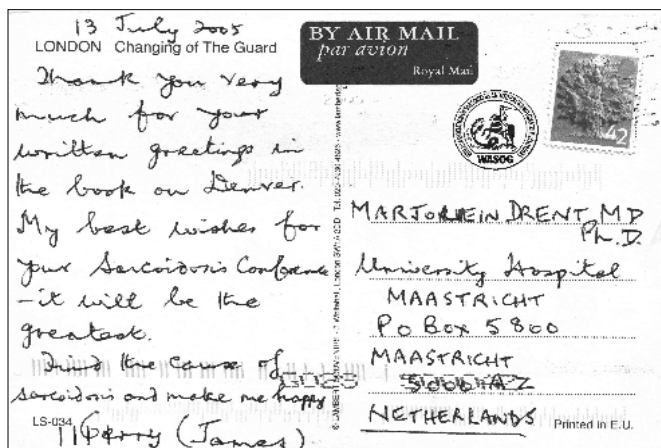 13 July 2005
LONDON Changing of The Guard
Thank you very
much for your
written greetings in
the book on Denver.
My best wishes for
your Sarcoidosis Conference
- it will be the
greatest.
Find the cause of
sarcoidosis and make me happy
Gerry (James)
LS-034
BY AIR MAIL
par avion
Royal Mail
42
WASOG
MARJOLEIN DRENT, MD
Ph.D.
University Hospital
MAASTRICHT
PO BOX 5800
MAASTRICHT
NETHERLANDS
Printed in E.U.